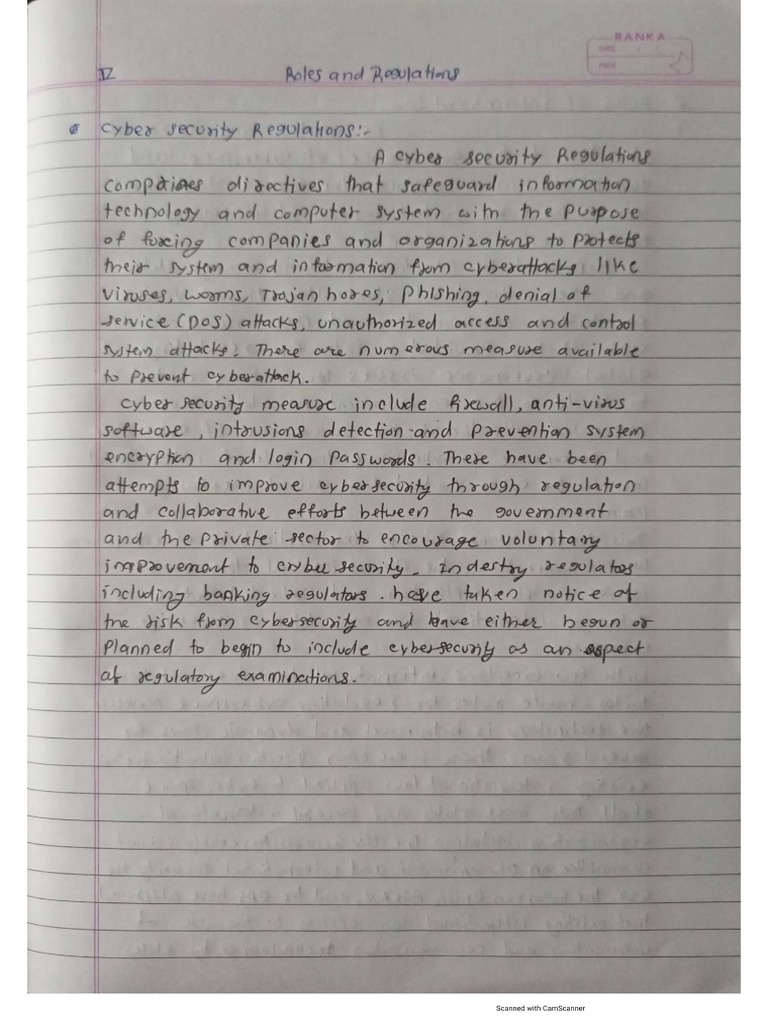 RANKA
DATE
PAGE
IV
Roles and Regulations
Cyber security Regulations:-
A cyber security Regulations
comprises directives that safeguard information
technology and computer system with the purpose
of forcing companies and organizations to protects
their system and information from cyberattacks like
viruses, worms, Trojan hores, phishing, denial of
service (DOS) attacks, unauthorized access and control
system attacks. There are numerous measure available
to prevent cyberattack.
cyber security measure include firewall, anti-virus
software, intrusions detection and prevention system
encryption and login passwords. There have been
attempts to improve cybersecurity through regulation
and collaborative efforts between the government
and the private sector to encourage voluntary
improvement to cyber security. indestry regulators
including banking regulators. have taken notice of
the risk from cybersecurity and have either begun or
planned to begin to include cybersecurity as an aspect
of regulatory examinations.
Scanned with CamScanner